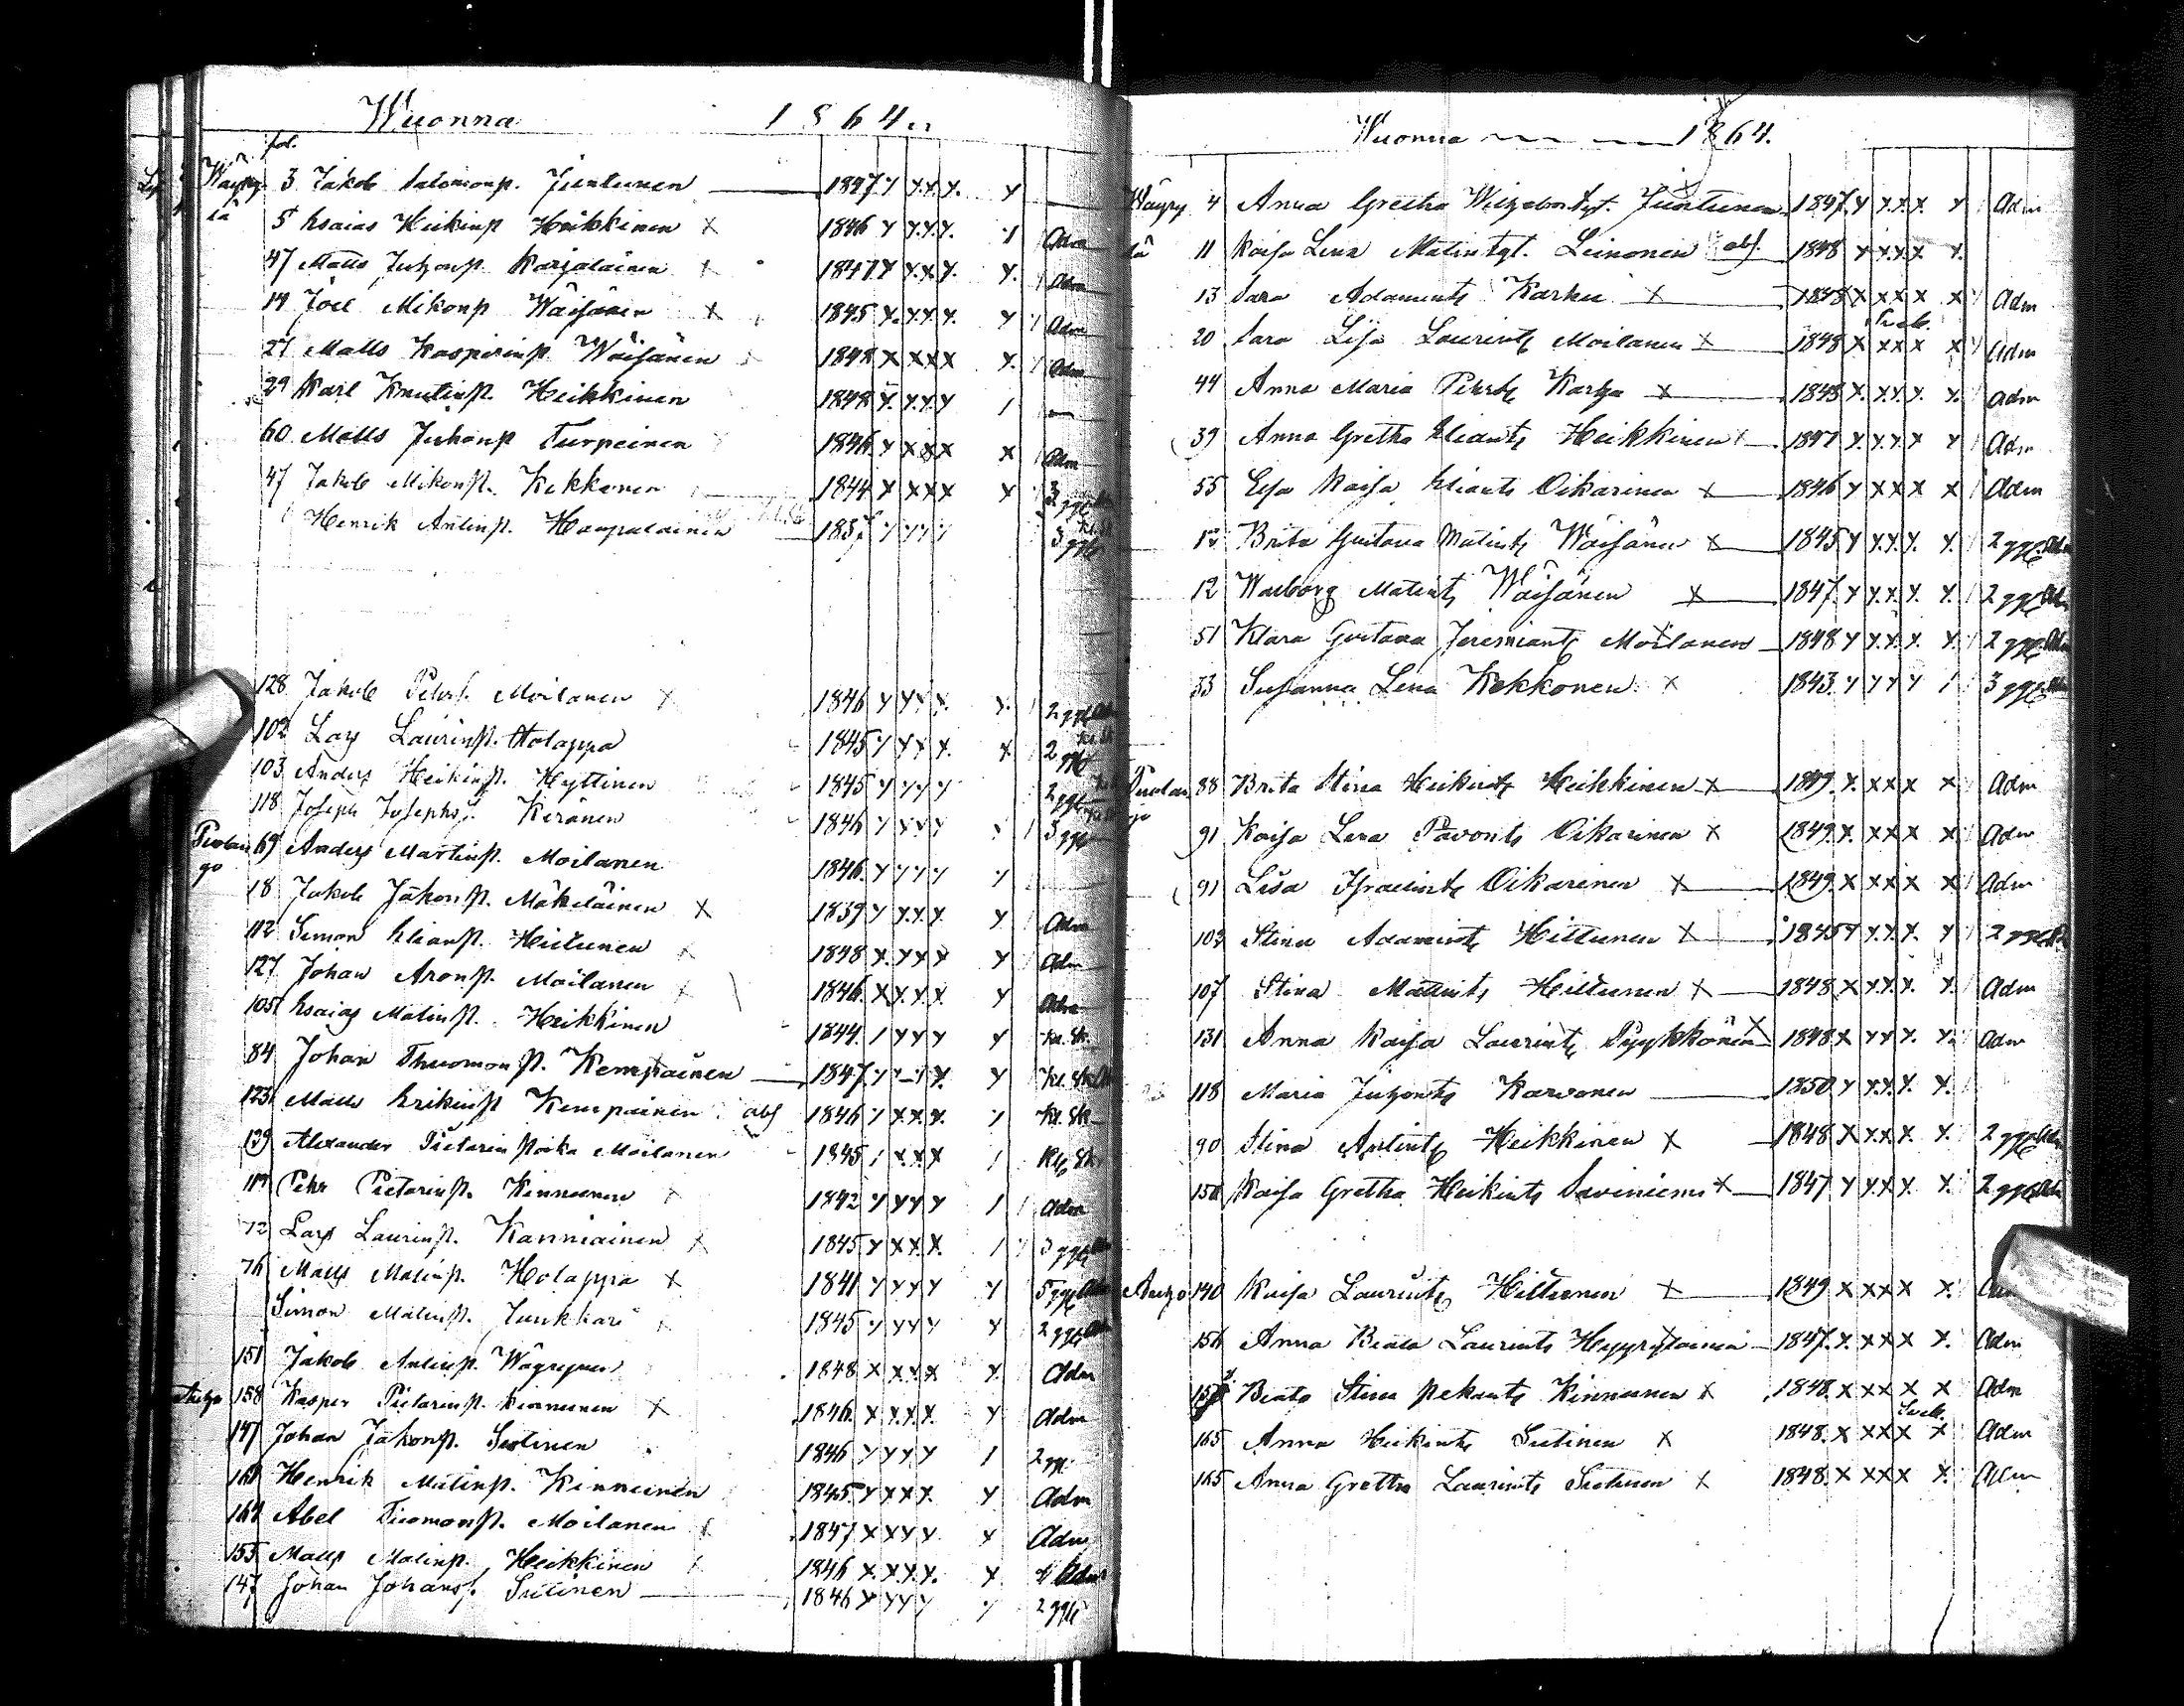 Wuonna 1864
fol.
Wäyry 3 Jakob Salomonp. Juntunen 1847 y y x y. y
lä 5 Esaias Heikinp Heikkinen x 1846 y y.y.y. y Adm
47 Matts Juhonp. Karjalainen x 1847 y y.x y. y. Adm
14 Joel Mikonp Wäisänen x 1845 y. y.y y. y Adm
27 Matts Kasperinp. Wäisänen 1848 x x x x y. Adm
29 Karl Knutinp. Heikkinen 1848 y. y.y.y /
60 Matts Juhonp Turpeinen 1846 y x x x x Adm
47 Jakob Mikonp. Kekkonen 1844 x x x x y 3 ggr
Henrik Antinp. Haapalainen 1837 y y y y 3 ggr
128 Jakob Pehrs. Moilanen x 1846 y y y y. y. 2 ggr Adm
102 Lars Laurinp. Holappa 1845 y y y y. x 2 ggr
103 Anders Heikinp. Hyttinen 1845 y y y y 2 ggr
118 Joseph Josephs. Keränen 1846 y y y y y 3 ggr
Puolan 69 Anders Martinp. Moilanen 1846. y y y y y
go 18 Jakob Jakonp. Mäkeläinen x 1839 y y.y.y. y Adm
112 Simon Elianp. Hiltunen x 1848 x. y y x y Adm
127 Johan Aronp. Moilanen x 1846. x y. y. y. y Adm
105 Esaias Matinp. Heikkinen 1844 / y y y y Kl. Sk.
84 Johan Thuomonp. Kempainen 1847 y y - y y. y Kl. Sk.
123 Matts Erikinp Kempainen abs 1846 y x.x.x. y Kl. Sk.
129 Alexander Pietarin poika Moilanen 1845 / x.x.x / Kl. Sk.
117 Pehr Pietarinp. Kinnunen x 1842 y y y y / Adm
72 Lars Laurinp. Kanniainen x 1845 y x x x. / 3 ggr
76 Matts Matinp. Holappa x 1841 y y y y y 5 ggr
Simon Matinp. Junkkari x 1845 y y y y y 2 ggr
151 Jakob Antinp. Wäyrynen 1848 x x x x y. Adm
158 Kasper Pietarinp. Kinnunen x 1846. x x.x.x. y Adm
147 Johan Jakonp. Sutinen 1846 y y y y / 2 gg.
Henrik Matinp. Kinnunen 1845 y x x x. y Adm
164 Abel Tuomonp. Moilanen x 1847 x x y y. x Adm
155 Matts Matinp. Heikkinen x 1846 x x.y.x. y. Adm
147 Johan Johans. Sutinen 1846 y y y y y 2 ggr
Wuonna 1864.
Wäyry 4 Anna Gretha Juntunen 1847. y y.x.x. y Adm
lä 11 Kaisa Lena Matintyt. Leinonen abs. 1848 y y.x.x x.
13 Sara Adamints Karhu x 1848 x x x x x Adm
20 Sara Lisa Laurints Moilanen x 1848 x x x x x Adm
44 Anna Maria Pehrsts Karhu x 1848 x. y.y. y. y. Adm
39 Anna Gretha Eliants Heikkinen x 1847 y. y.y. x y Adm
55 Eva Kaisa Eliants Oikarinen x 1846 y x x x x Adm
Brita Gustava Matints Wäisänen x 1845 y y.y. y. y. 2 ggr. Adm
12 Walborg Matints Wäisänen x 1847. y y.y. y. y. 2 ggr. Adm
51 Klara Gustava Jeremiants Moilanen 1848 y y.y. y. y 2 ggr Adm
33 Susanna Lena Kekkonen x 1843. y y y y / 3 ggr. Adm
Puolan 88 Brita Stina Heikints Heikkinen x 1849. x. x x x x Adm
go 91 Kaisa Lena Pavonts Oikarinen x 1849. x. x x x x Adm
91 Lisa Israelints Oikarinen x 1849. x x x x x Adm
103 Stina Adamints Hiltunen x 1845 y y.y. y. y 2 ggr
107 Stina Mattints Hiltunen x 1848. x y.y. y. y. Adm
131 Anna Kaisa Laurints Pyykkönen x 1848 x y y y. y. Adm
118 Maria Juhonts Karvonen 1850 y y.y. y. y.
90 Stina Antints Heikkinen x 1848. x y.x x. y. 2 ggr. Adm
Kaisa Gretha Heikints x 1847 y y.x y. y. 2 ggr. Adm
140 Kaisa Laurints Hiltunen x 1849 x x x x x.
156 Anna Beata Laurints x 1847. y. x x x y. Adm
Beata Stina Pekants Kinnunen x 1848. x x x x x Adm
165 Anna Heikints Sutinen x 1848. x x x x x Adm
165 Anna Gretha Laurints Sutinen x 1848. x x x x x. Adm